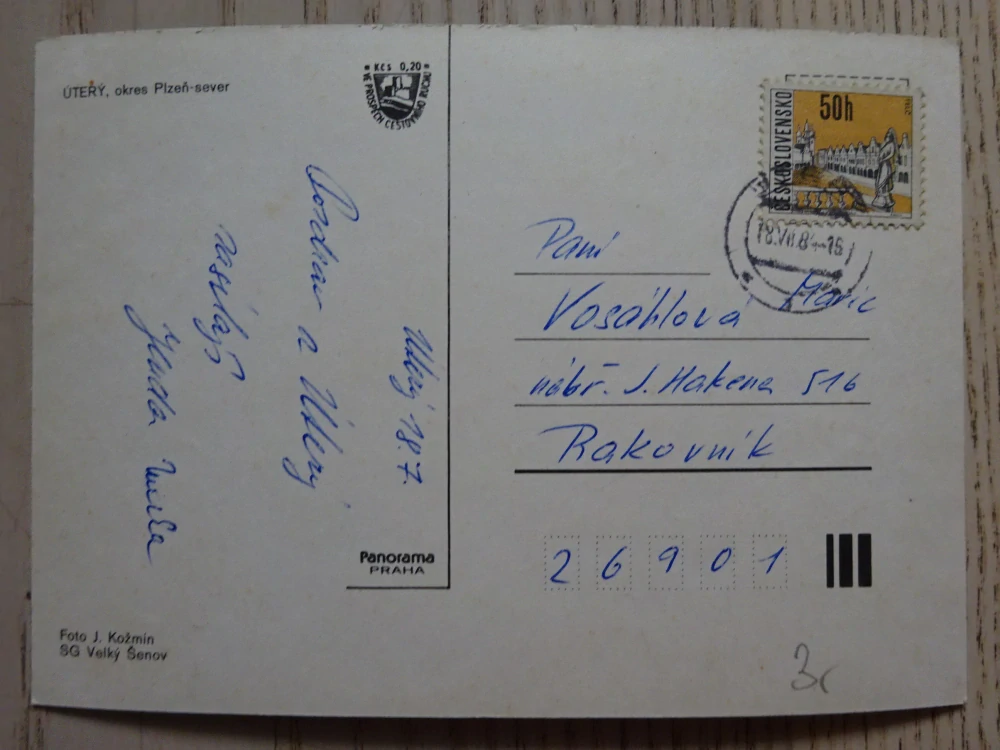 ÚTERÝ, okres Plzeň-sever
* Kčs 0,20 *
VE PROSPĚCH CESTOVNÍHO RUCHU
Úterý 18.7.
Pozdrav z Úterý
Jláďa
Panorama
PRAHA
Foto J. Kožmín
SG Velký Šenov
ČESKOSLOVENSKO
50h
18.VII.8
Paní
Marie
Vosáhlová
nábř. J. Hakena 516
Rakovník
26901
3,